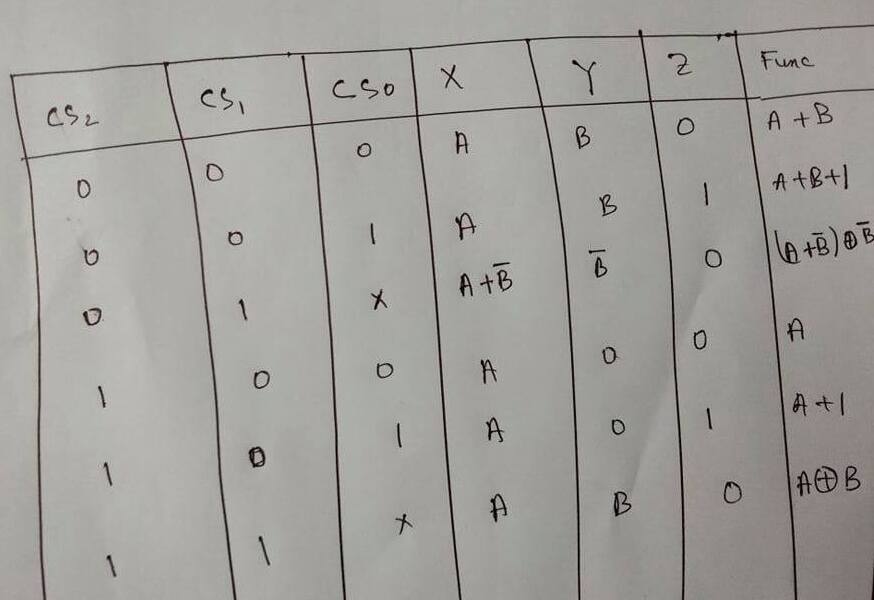 CS₂ CS₁ CS0 X Y Z Func
0 0 0 A B 0 A+B
0 0 1 A B 1 A+B+1
0 1 x A+B̅ B̅ 0 (A+B̅)⊕B̅
1 0 0 A 0 0 A
1 0 1 A 0 1 A+1
1 1 x A B 0 A⊕B